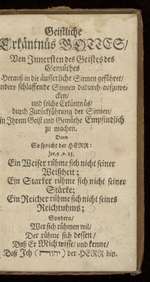 Geistliche
Erkäntnüs GOTTES/
Von Innersten des Geistes des
Gemühtes
Herauß in die äusserliche Sinnen geführet/
andere schlaffende Sinnen dadurch aufzuwe-
cken/
und solche Erkäntnüs/
durch Zurückführung der Sinnen/
in Ihrem Geist und Gemühte Empfindlich
zu machen.
Dann
So spricht der HERR:
Jer.9.v.23.
Ein Weiser rühme sich nicht seiner
Weißheit;
Ein Starcker rühme sich nicht seiner
Stärcke;
Ein Reicher rühme sich nicht seines
Reichtuhms;
Sondern/
Wer sich rühmen wil/
Der rühme sich dessen/
Daß Er Mich wisse/ und kenne/
Daß Ich (יהוה) der HERR bin.